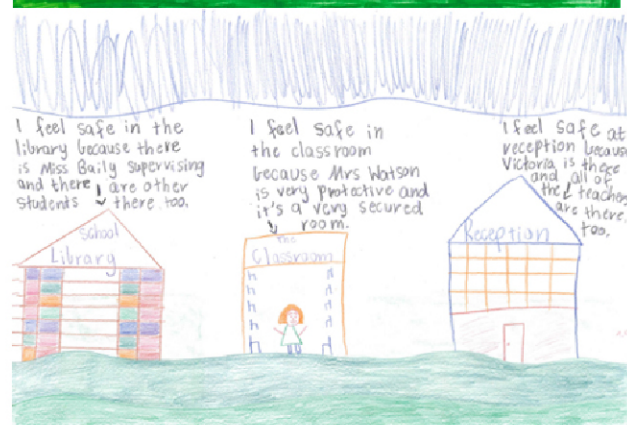 I feel safe in the
library because there
is Miss Baily supervising
and there are other
students there too.
School
Library
I feel safe in
the classroom
because Mrs Watson
is very protective and
it's a very secured
room.
the
Classroom
I feel safe at
reception because
Victoria is there
and all of
the teachers
are there
too.
Reception